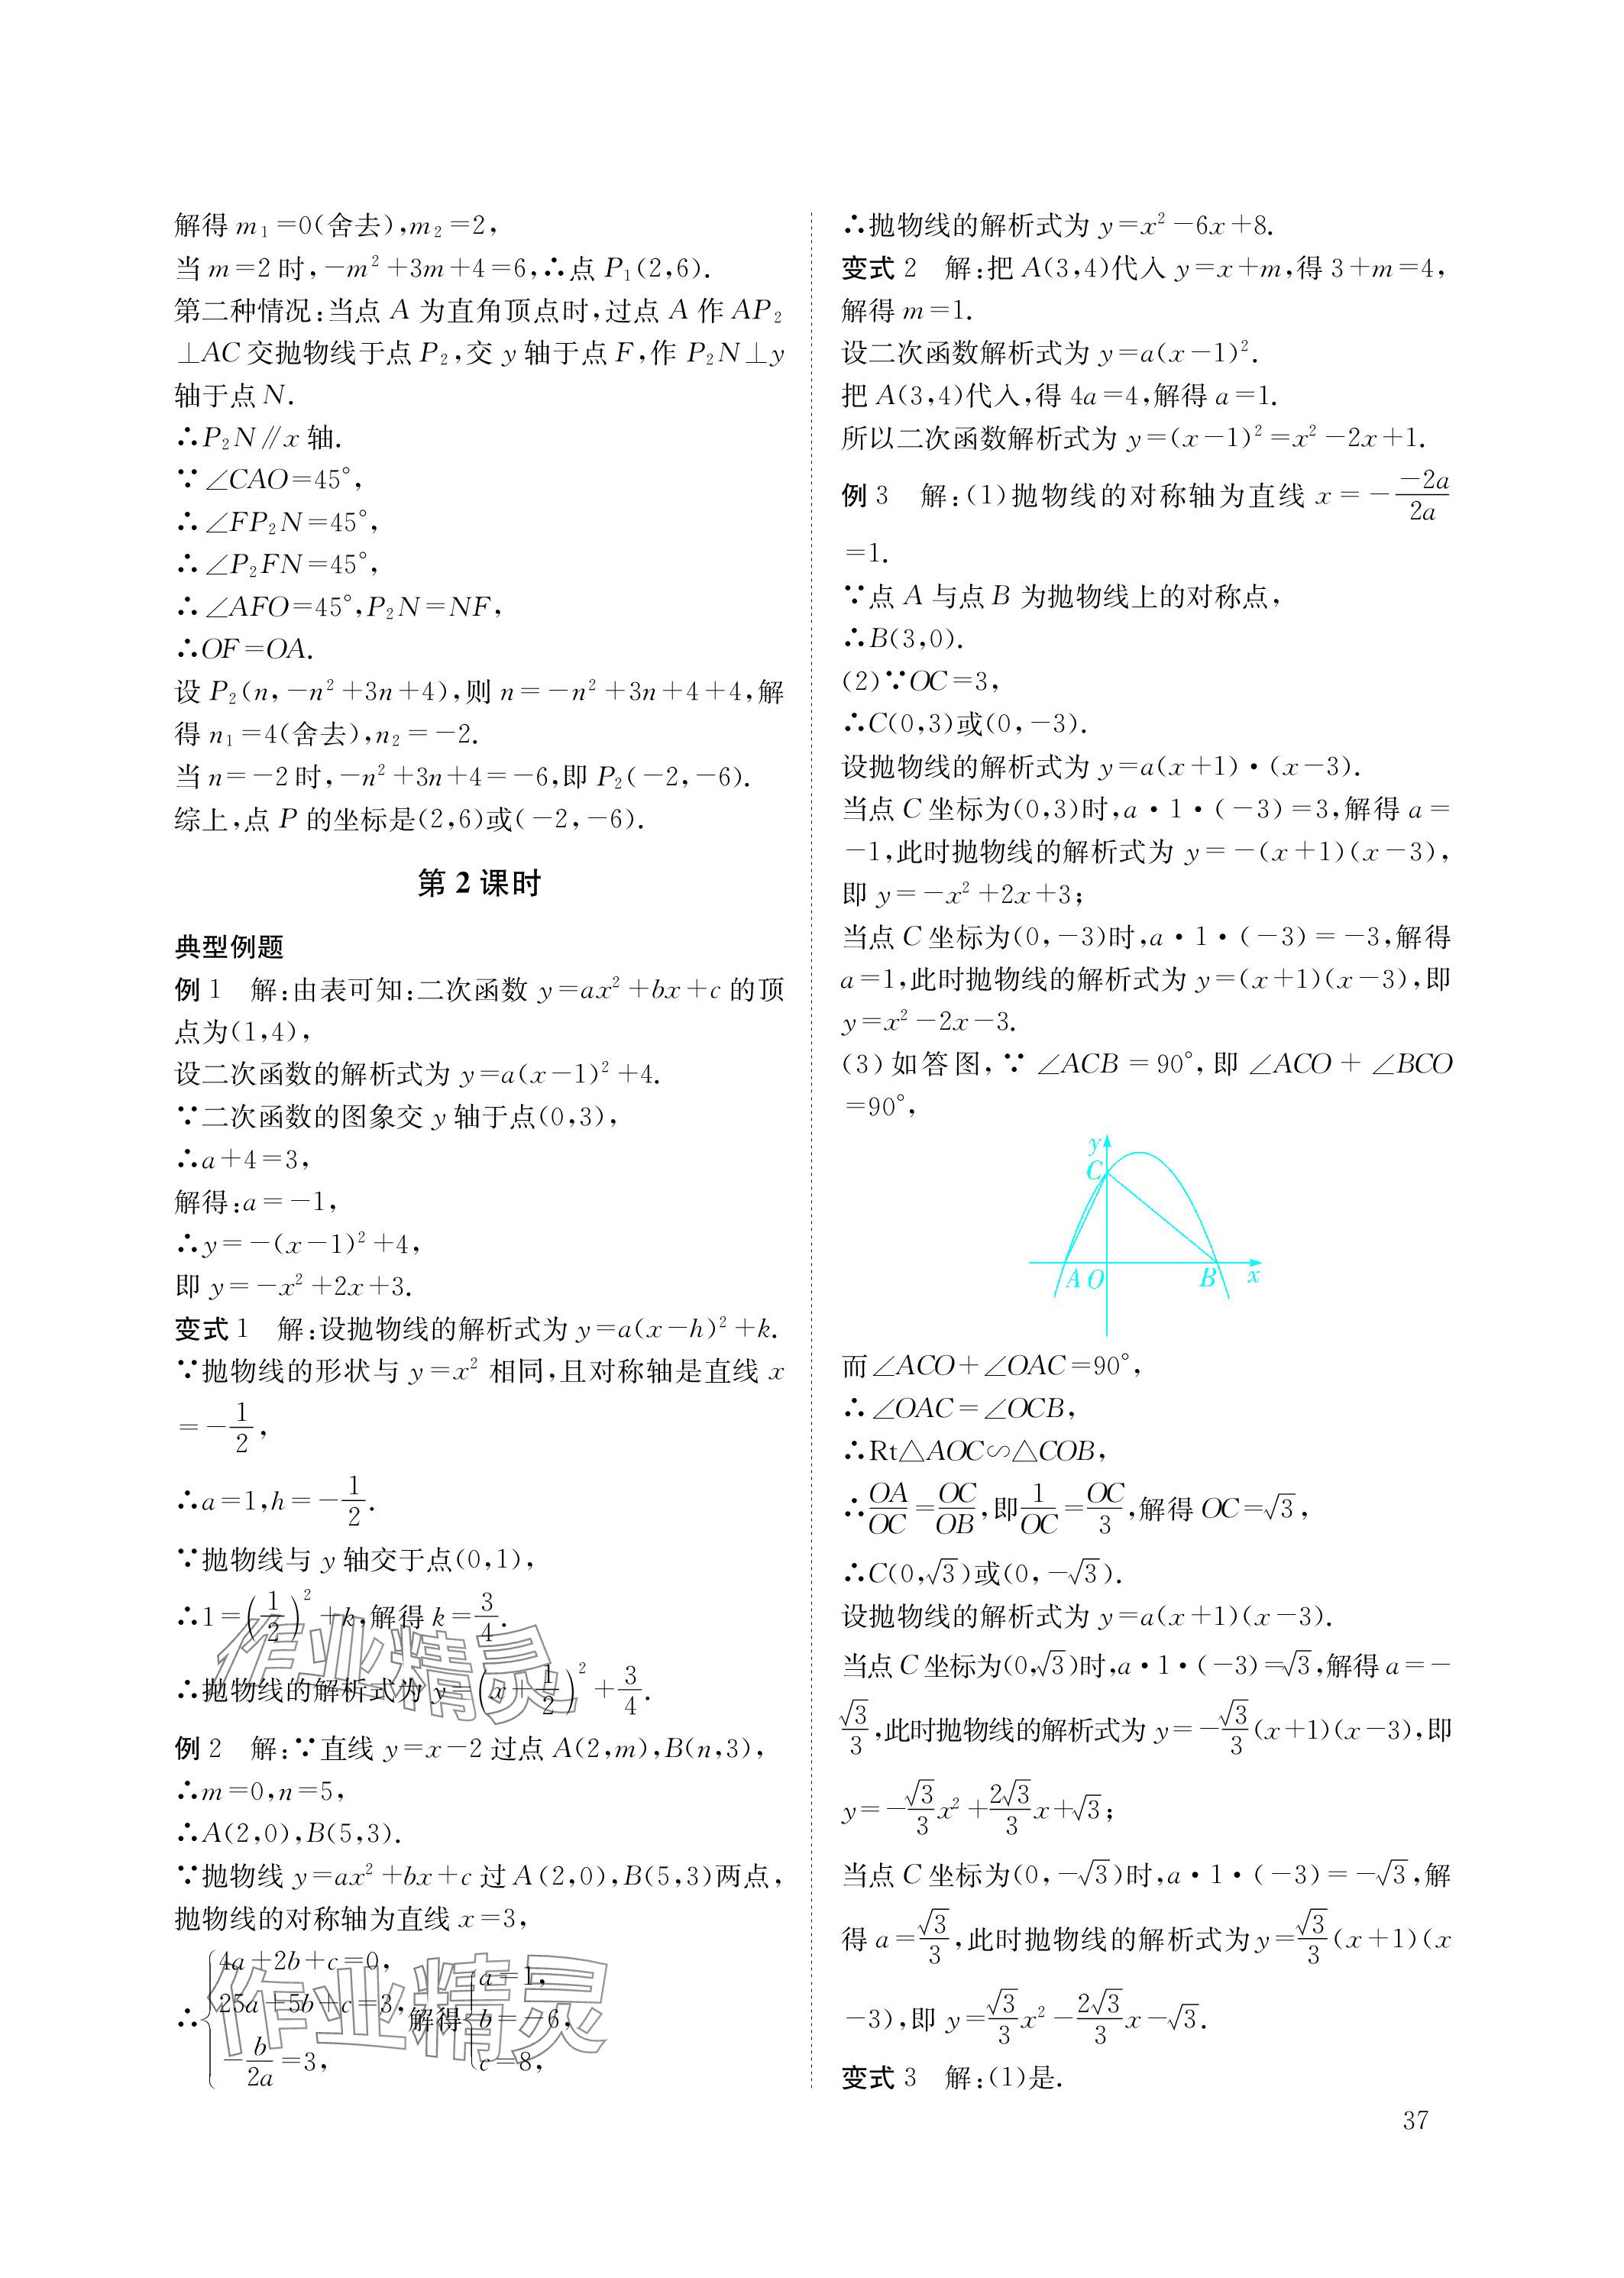 解得 m₁=0(舍去),m₂=2,
当 m=2 时,-m²+3m+4=6,∴点 P₁(2,6).
第二种情况:当点 A 为直角顶点时,过点 A 作 AP₂
⊥AC 交抛物线于点 P₂,交 y 轴于点 F,作 P₂N⊥y
轴于点 N.
∴P₂N∥x 轴.
∵∠CAO=45°,
∴∠FP₂N=45°,
∴∠P₂FN=45°,
∴∠AFO=45°,P₂N=NF,
∴OF=OA.
设 P₂(n,-n²+3n+4),则 n=-n²+3n+4+4,解
得 n₁=4(舍去),n₂=-2.
当 n=-2 时,-n²+3n+4=-6,即 P₂(-2,-6).
综上,点 P 的坐标是(2,6)或(-2,-6).
第 2 课时
典型例题
例 1 解:由表可知:二次函数 y=ax²+bx+c 的顶
点为(1,4),
设二次函数的解析式为 y=a(x-1)²+4.
∵二次函数的图象交 y 轴于点(0,3),
∴a+4=3,
解得:a=-1,
∴y=-(x-1)²+4,
即 y=-x²+2x+3.
变式 1 解:设抛物线的解析式为 y=a(x-h)²+k.
∵抛物线的形状与 y=x² 相同,且对称轴是直线 x
=-1/2,
∴a=1,h=-1/2.
∵抛物线与 y 轴交于点(0,1),
∴1=(1/2)²+k,解得 k=3/4.
∴抛物线的解析式为 y=(x+1/2)²+3/4.
作业精灵
例 2 解:∵直线 y=x-2 过点 A(2,m),B(n,3),
∴m=0,n=5,
∴A(2,0),B(5,3).
∵抛物线 y=ax²+bx+c 过 A(2,0),B(5,3)两点,
抛物线的对称轴为直线 x=3,
∴{4a+2b+c=0, 25a+5b+c=3, -b/2a=3, 解得{a=1, b=-6, c=8,
作业精灵
∴抛物线的解析式为 y=x²-6x+8.
变式 2 解:把 A(3,4)代入 y=x+m,得 3+m=4,
解得 m=1.
设二次函数解析式为 y=a(x-1)².
把 A(3,4)代入,得 4a=4,解得 a=1.
所以二次函数解析式为 y=(x-1)²=x²-2x+1.
例 3 解:(1)抛物线的对称轴为直线 x=-(-2a)/2a
=1.
∵点 A 与点 B 为抛物线上的对称点,
∴B(3,0).
(2)∵OC=3,
∴C(0,3)或(0,-3).
设抛物线的解析式为 y=a(x+1)·(x-3).
当点 C 坐标为(0,3)时,a·1·(-3)=3,解得 a=
-1,此时抛物线的解析式为 y=-(x+1)(x-3),
即 y=-x²+2x+3;
当点 C 坐标为(0,-3)时,a·1·(-3)=-3,解得
a=1,此时抛物线的解析式为 y=(x+1)(x-3),即
y=x²-2x-3.
(3)如答图,∵∠ACB=90°,即∠ACO+∠BCO
=90°,
y
C
A O B x
而∠ACO+∠OAC=90°,
∴∠OAC=∠OCB,
∴Rt△AOC∽△COB,
∴OA/OC=OC/OB,即1/OC=OC/3,解得 OC=√3,
∴C(0,√3)或(0,-√3).
设抛物线的解析式为 y=a(x+1)(x-3).
当点 C 坐标为(0,√3)时,a·1·(-3)=√3,解得 a=-
√3/3,此时抛物线的解析式为 y=-√3/3(x+1)(x-3),即
y=-√3/3x²+2√3/3x+√3;
当点 C 坐标为(0,-√3)时,a·1·(-3)=-√3,解
得 a=√3/3,此时抛物线的解析式为y=√3/3(x+1)(x
-3),即 y=√3/3x²-2√3/3x-√3.
变式 3 解:(1)是.
37